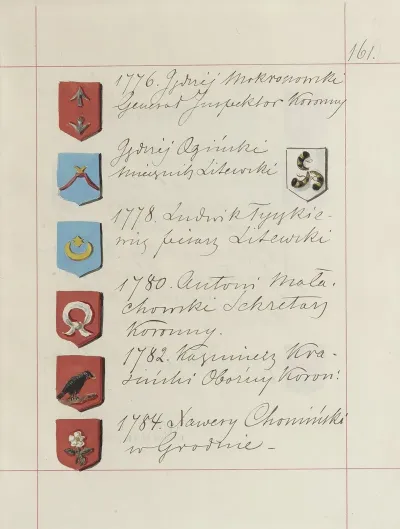 161.
1776. Jędrzéj Mokronowski
General Inspektor Koronny
Jędrzéj Ogiński
Miecznik Litewski
1778. Ludwik Tyszkie-
wicz pisarz Litewski
1780. Antoni Mała-
chowski Sekretarz
Koronny.
1782. Kazimierz Kra-
siński Oboźny Koron:
1784. Xawery Chomiński
w Grodnie -